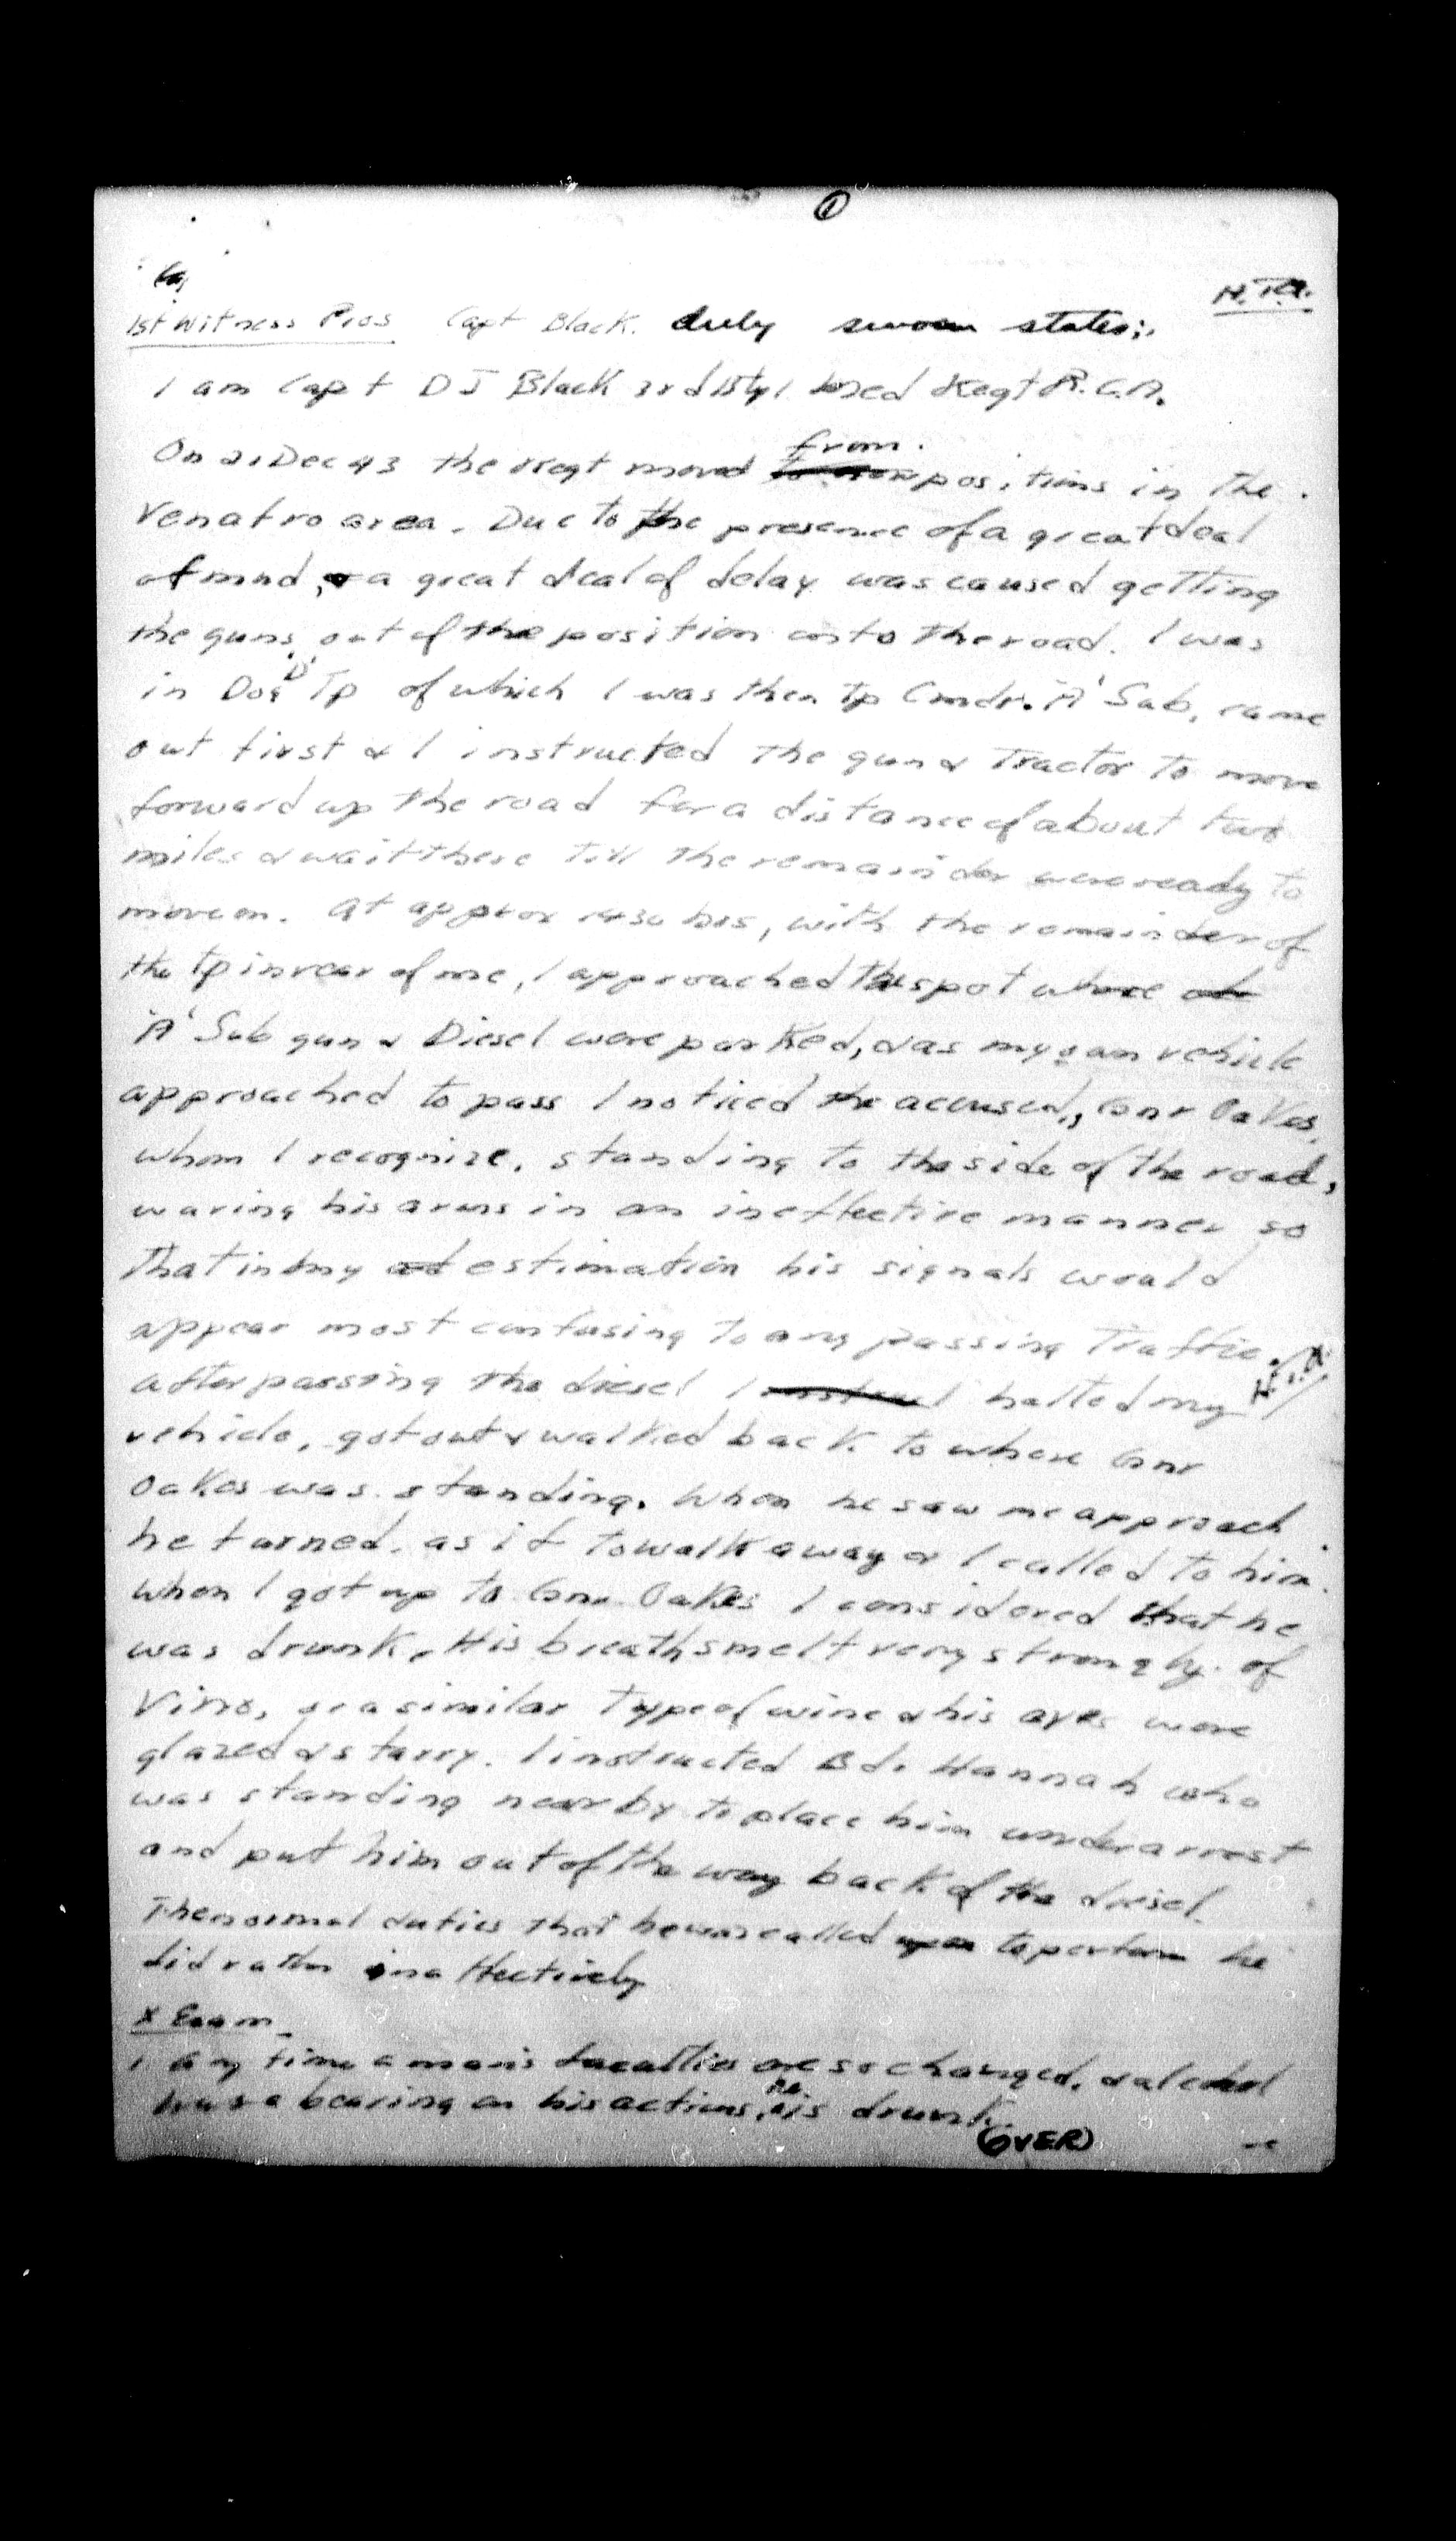 ①
1st Witness Pros Capt Black. duly sworn states:
I am Capt D J Black Med Regt R.C.A.
from
On 21 Dec 43 the regt moved positions in the
Venafro area. Due to the presence of a great deal
of mud, a great deal of delay was caused getting
the guns out of the position onto the road. I was
in Dog 'D' Tp of which I was then Tp Cmdr. 'A' Sub, came
out first & I instructed the gun & Tractor to move
forward up the road for a distance of about two
miles & wait there till the remainder were ready to
move on. At approx 1430 hrs, with the remainder of
the tp in rear of me, I approached the spot where
'A' Sub gun & Diesel were parked, & as my own vehicle
approached to pass I noticed the accused, Gnr Oakes,
whom I recognize, standing to the side of the road,
waving his arms in an ineffective manner so
that in my estimation his signals would
appear most confusing to any passing traffic.
after passing the diesel I halted my
vehicle, got out & walked back to where Gnr
Oakes was standing. When he saw me approach
he turned as if to walk away & I called to him.
When I got up to Gnr Oakes I considered that he
was drunk. His breath smelt very strongly of
Vino, or a similar type of wine & his eyes were
glazed & starry. I instructed Bdr Hannah who
was standing nearby to place him under arrest
and put him out of the way back of the diesel.
The normal duties that he was called upon to perform he
did rather ineffectively
X Exam
1 Any time a man's faculties are so changed, & alcohol
has a bearing on his actions, he is drunk.
(OVER)